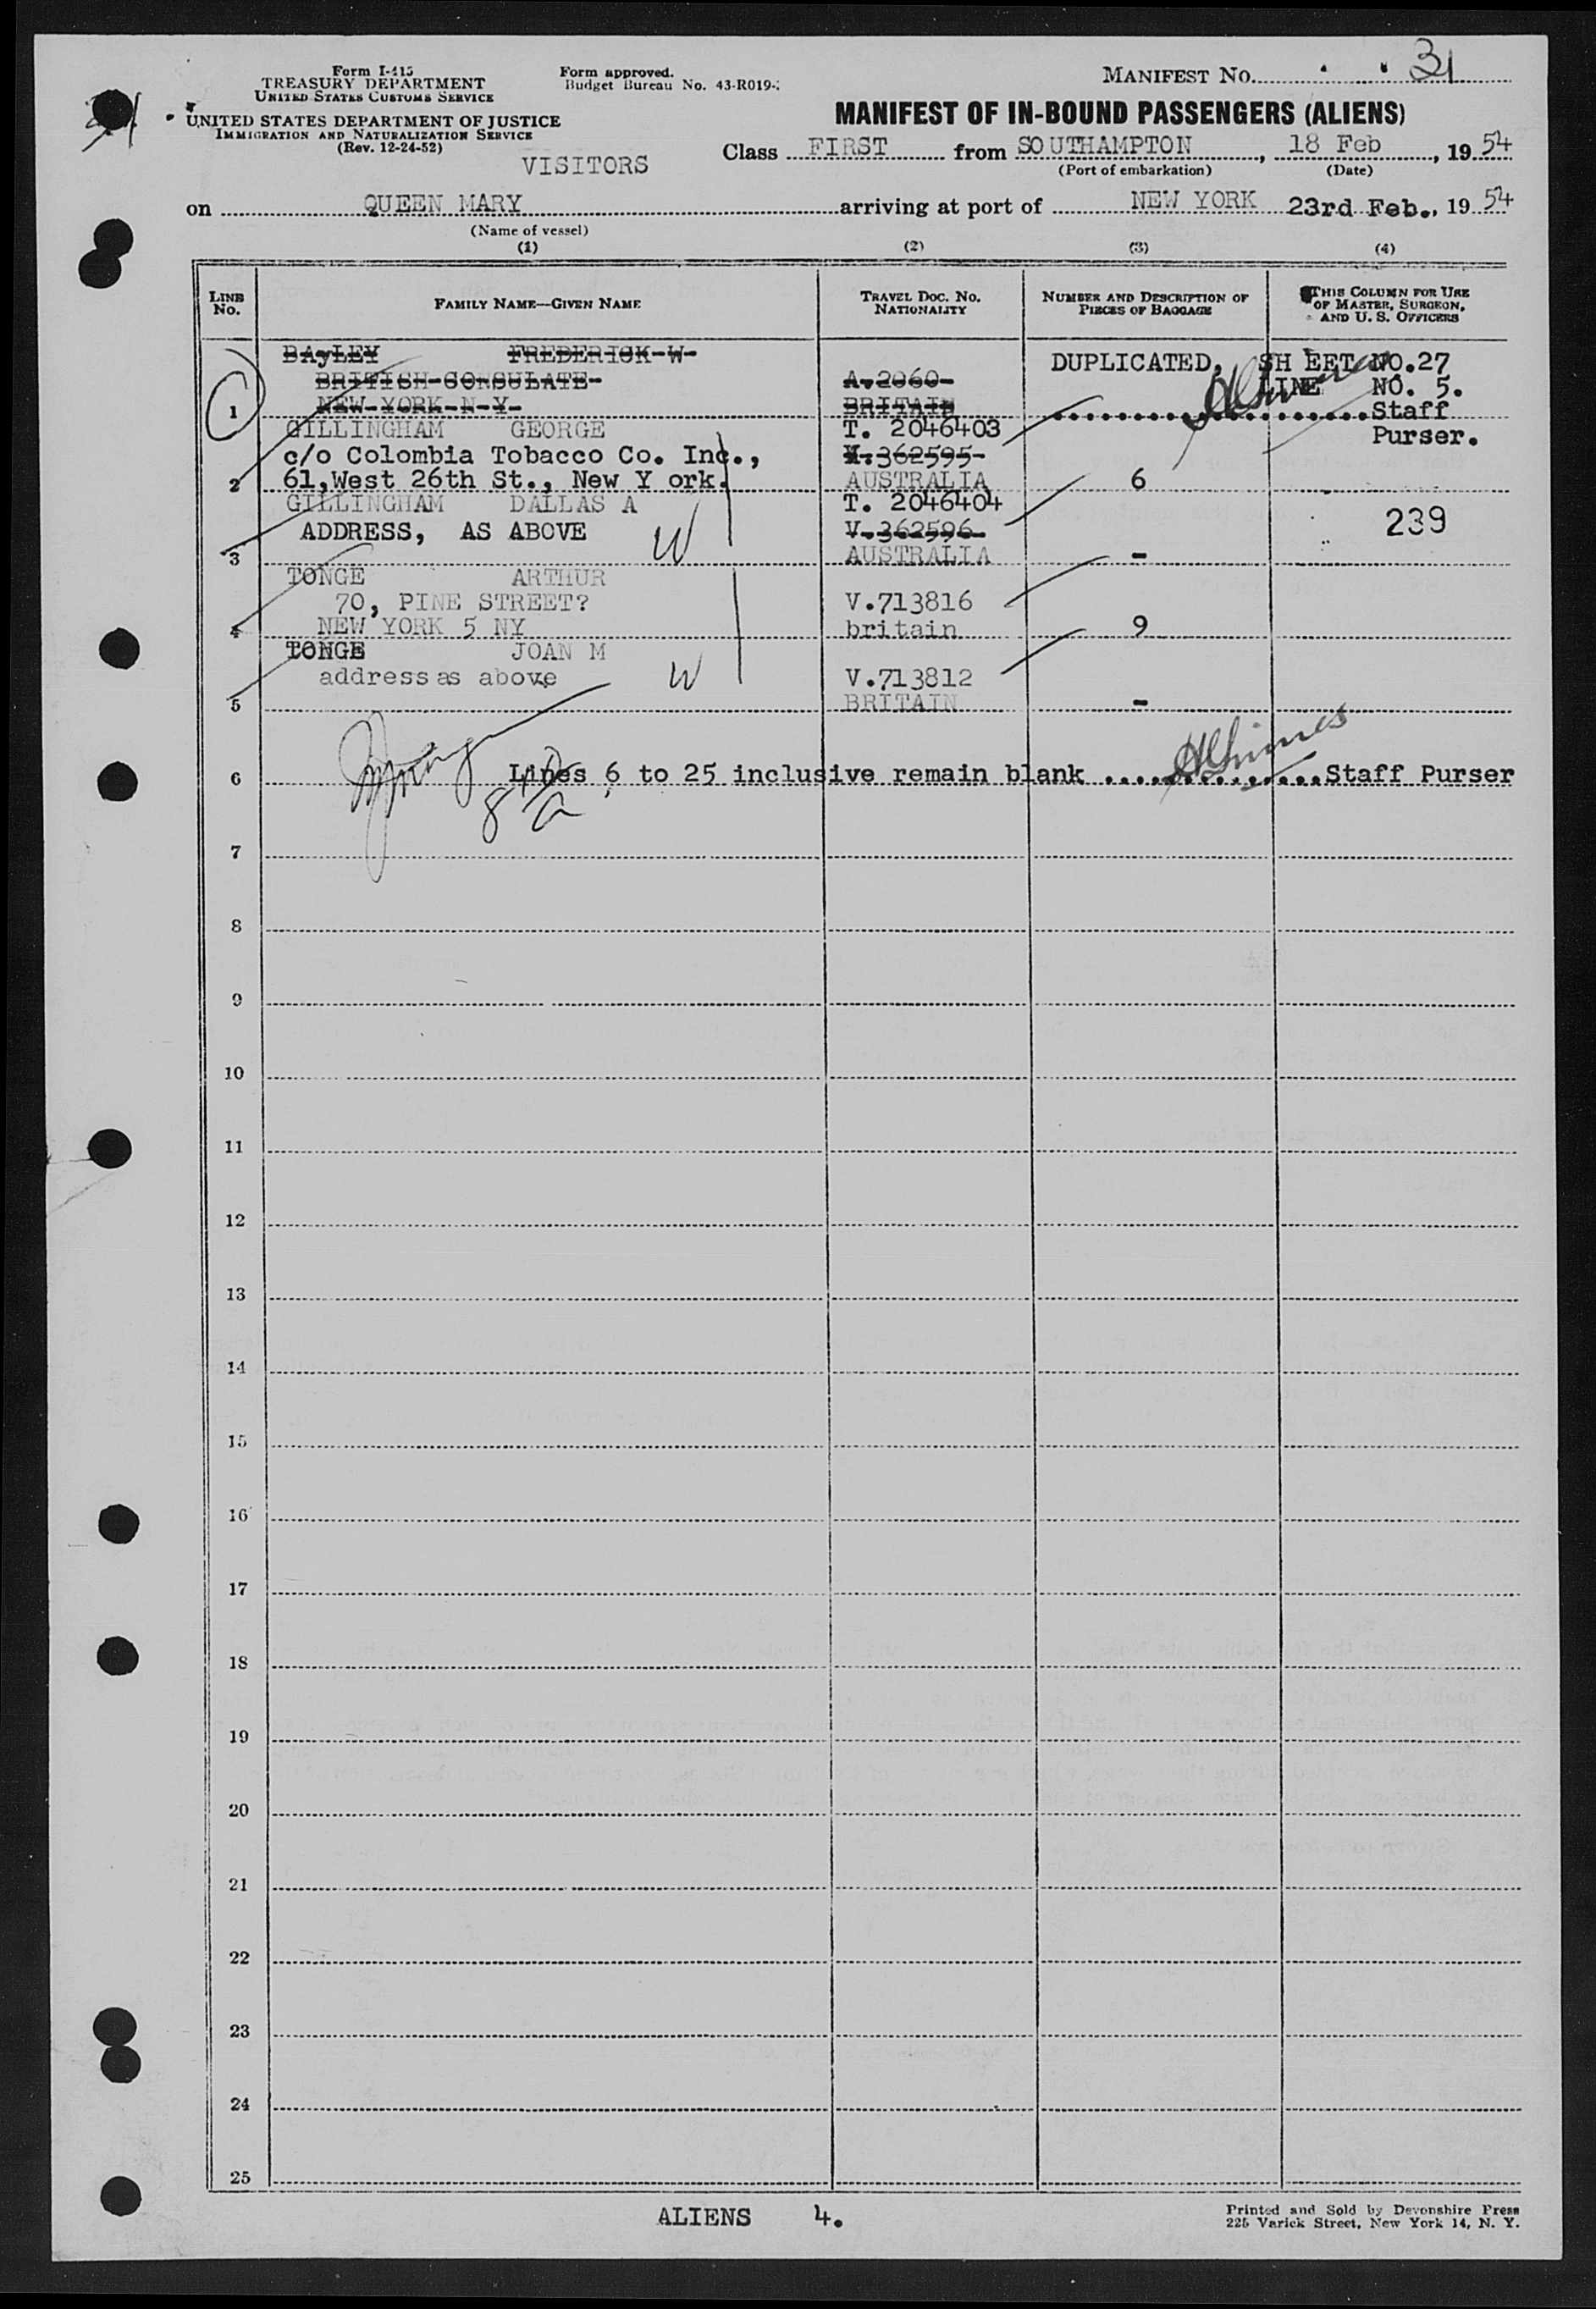 Form I-415
TREASURY DEPARTMENT
UNITED STATES CUSTOMS SERVICE
UNITED STATES DEPARTMENT OF JUSTICE
IMMIGRATION AND NATURALIZATION SERVICE
(Rev. 12-24-52)
Form approved.
Budget Bureau No. 43-R019-
MANIFEST NO. 31
MANIFEST OF IN-BOUND PASSENGERS (ALIENS)
VISITORS
Class FIRST from SOUTHAMPTON, 18 Feb, 1954
(Port of embarkation) (Date)
on QUEEN MARY arriving at port of NEW YORK 23rd Feb., 1954
(Name of vessel)
(1) (2) (3) (4)
LINE NO.
FAMILY NAME—GIVEN NAME
TRAVEL DOC. NO. NATIONALITY
NUMBER AND DESCRIPTION OF PIECES OF BAGGAGE
THIS COLUMN FOR USE OF MASTER, SURGEON, AND U. S. OFFICERS
BAyLEY FREDERICK-W-
BRITISH-CONSULATE- A.2060-
1 NEW-YORK-N-Y- BRITAIN
DUPLICATED, SH EET NO.27
LINE NO. 5.
Staff
Purser.
GILLINGHAM GEORGE T. 2046403
c/o Colombia Tobacco Co. Inc., V.362595-
2 61,West 26th St., New Y ork. AUSTRALIA 6
GILLINGHAM DALLAS A T. 2046404
ADDRESS, AS ABOVE W V.362596- 239
3 AUSTRALIA -
TONGE ARTHUR
70, PINE STREET? V.713816
4 NEW YORK 5 NY britain 9
TONGE JOAN M
address as above W V.713812
5 BRITAIN -
6 Lines 6 to 25 inclusive remain blank Staff Purser
7
8
9
10
11
12
13
14
15
16
17
18
19
20
21
22
23
24
25
ALIENS 4.
Printed and Sold by Devonshire Press
225 Varick Street, New York 14, N. Y.